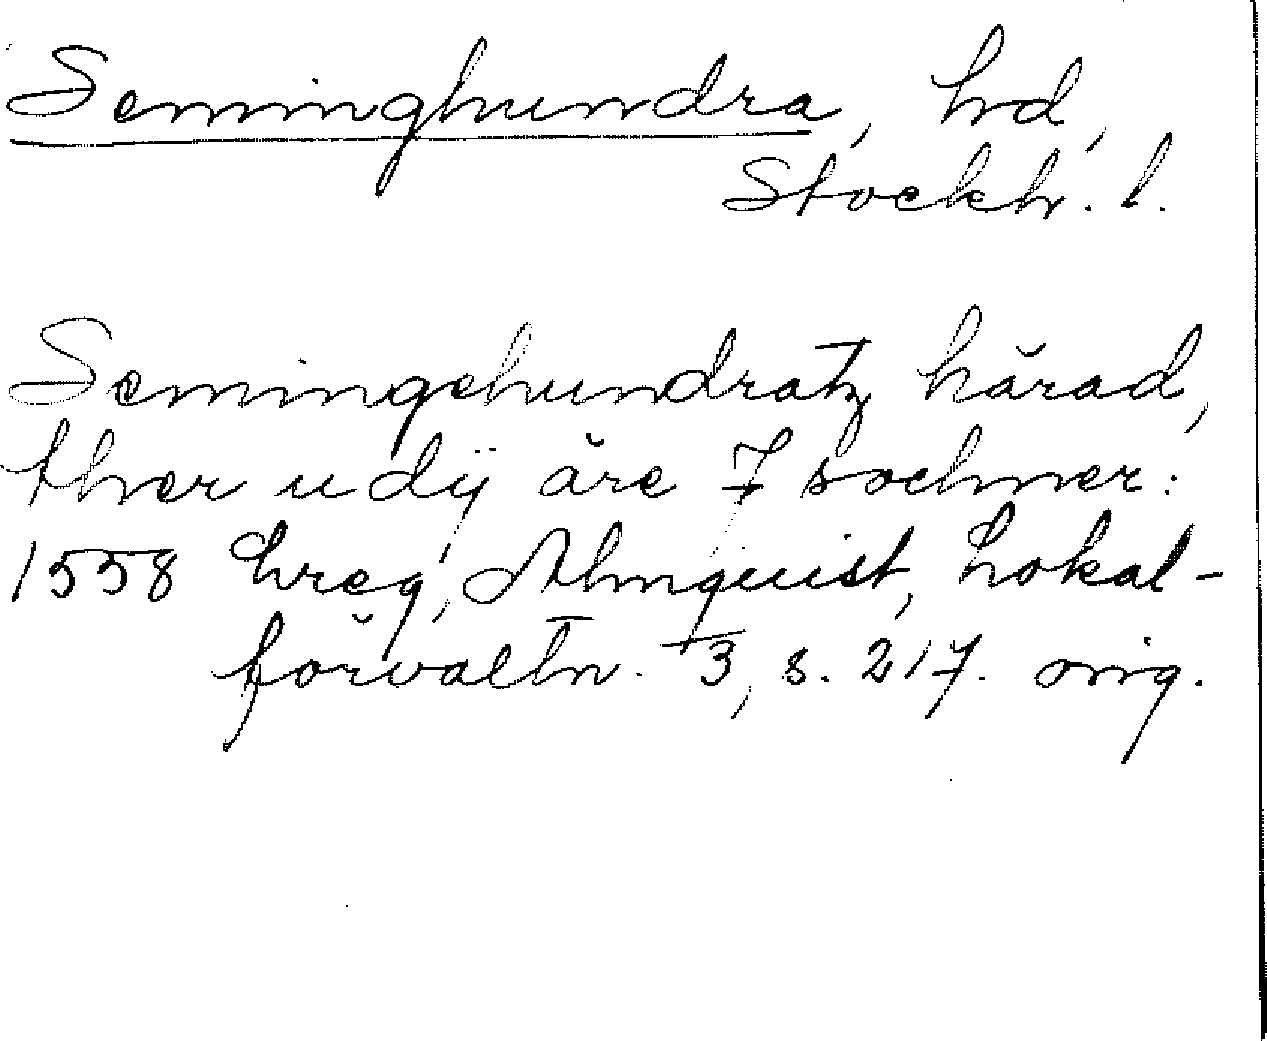 Seminghundra, hd,
Stockh. l.
Semingehundratz härad,
ther udij äre 7 sochner:
1558 hreg, Almquist, Lokal-
förvaltn. 3, s. 217. orig.